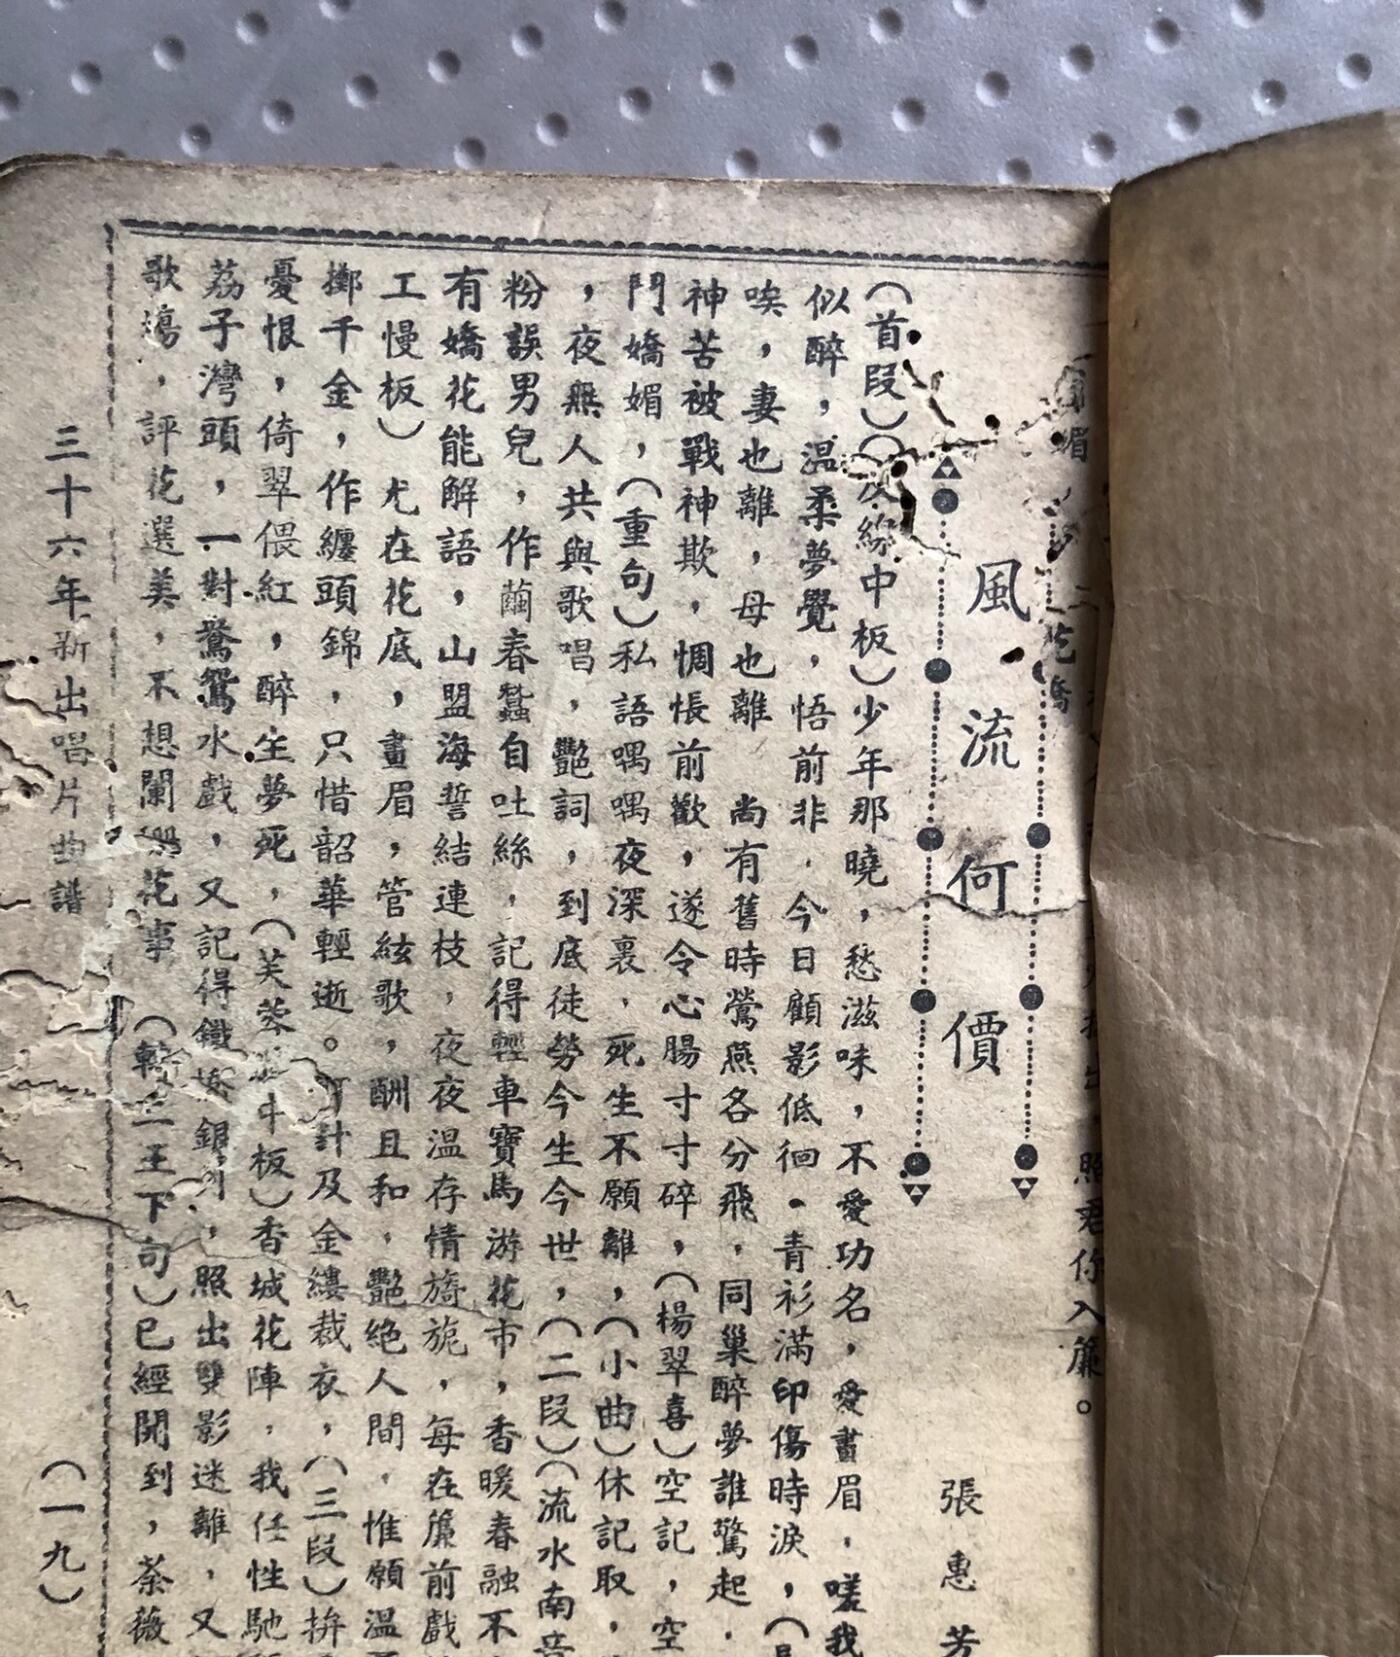 照君你入簾。
風流何價
張惠芳
（首段）（反線中板）少年那曉，愁滋味，不愛功名，愛畫眉，嗟我
似醉，温柔夢覺，悟前非，今日顧影低徊。青衫滿印傷時淚，（
唉，妻也離，母也離 尚有舊時鶯燕各分飛，同巢醉夢誰驚起，
神苦被戰神欺，惆悵前歡，遂令心腸寸寸碎，（楊翠喜）空記，空
鬥嬌媚，（重句）私語喁喁夜深裏，死生不願離，（小曲）休記取，
，夜無人共與歌唱，艷詞，到底徒勞今生今世，（二段）（流水南音
粉誤男兒，作繭春蠶自吐絲，記得輕車寶馬游花市，香暖春融不
有嬌花能解語，山盟海誓結連枝，夜夜温存情旖旎，每在簾前戲
工慢板）尤在花底，畫眉，管絃歌，酬且和，艷絕人間，惟願温
擲千金，作纏頭錦，只惜韶華輕逝。計及金縷裁衣，（三段）拚
憂恨，倚翠偎紅，醉生夢死，（芙蓉中板）香城花陣，我任性馳
荔子灣頭，一對鴛鴦水戲，又記得鐵橋銀，照出雙影迷離，又
歌塲，評花選美，不想闌珊花事 （轉二王下句）已經開到，荼薇
三十六年新出唱片曲譜 （一九）